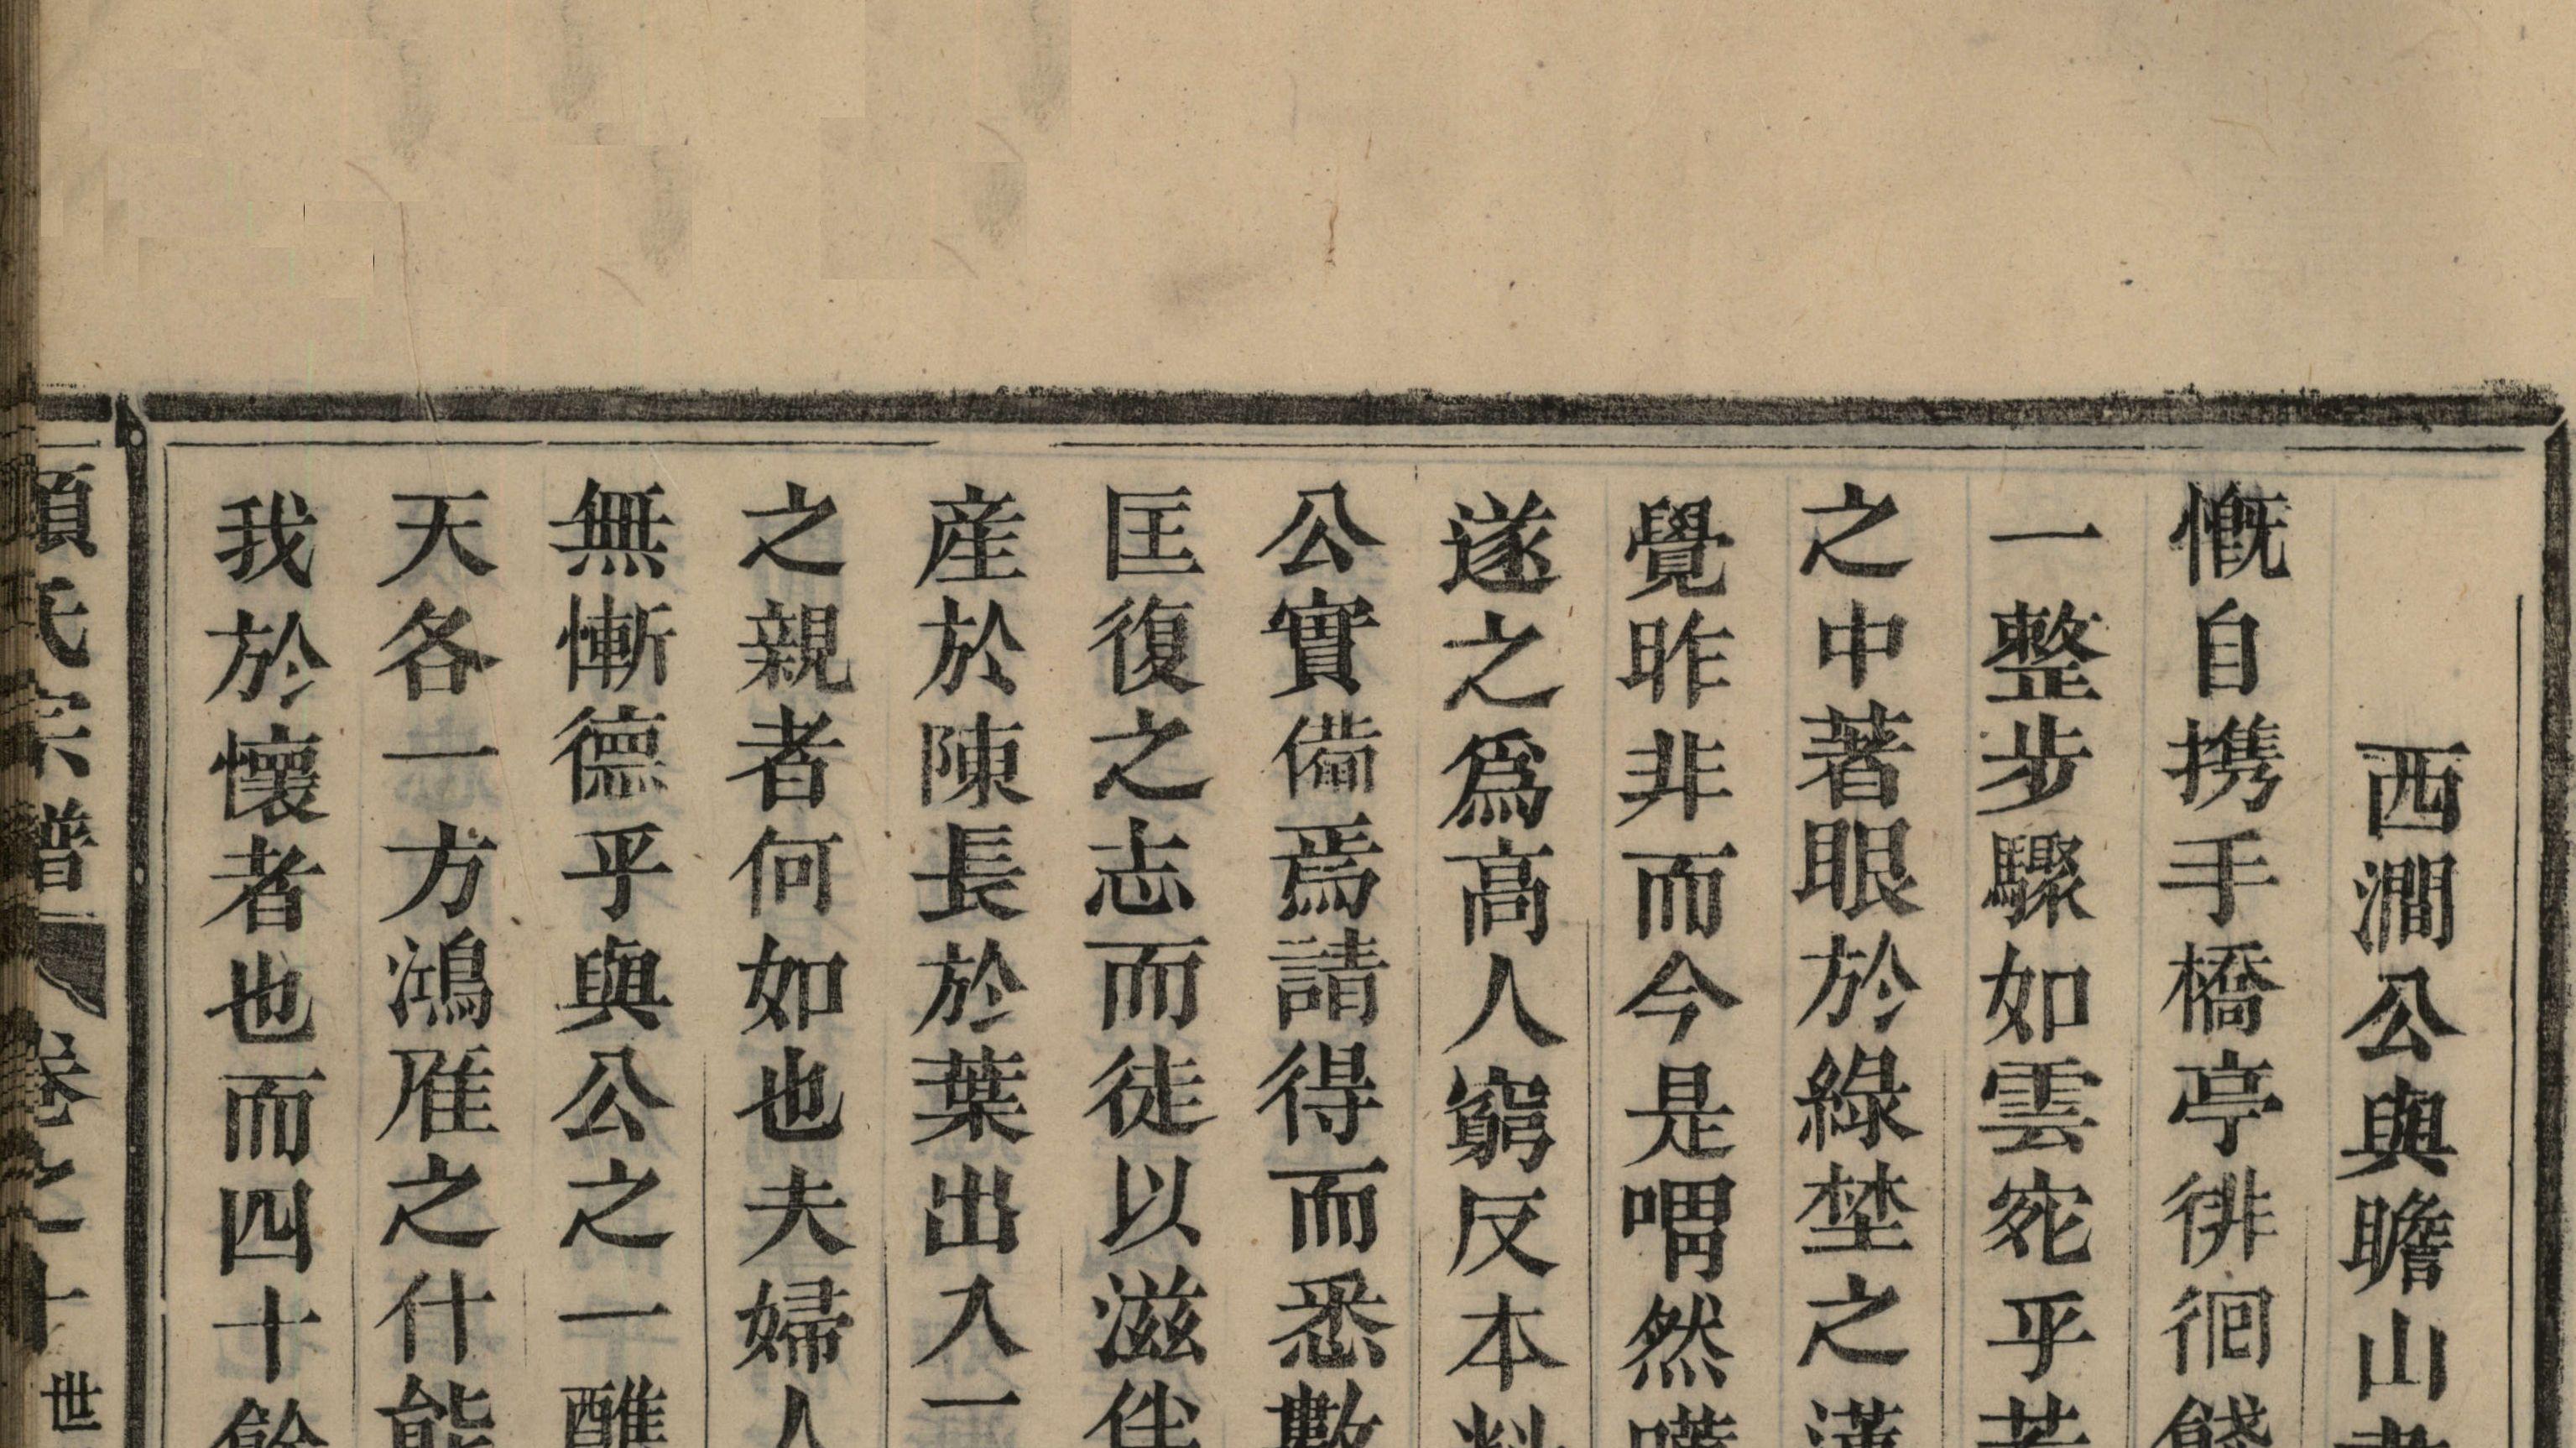 西澗公與瞻山書
慨自携手橋亭徘徊餞
一整步驟如雲宛乎若
之中著眼於綠埜之漢
覺昨非而今是喟然
遂之爲高人窮反本
公實備焉請得而悉數
匡復之志而徒以滋
産於陳長於葉出入一
之親者何如也夫婦人
無慚德乎與公之一醮
天各一方鴻雁之什能
我於懷者也而四十餘
項氏宗譜 卷之十 世